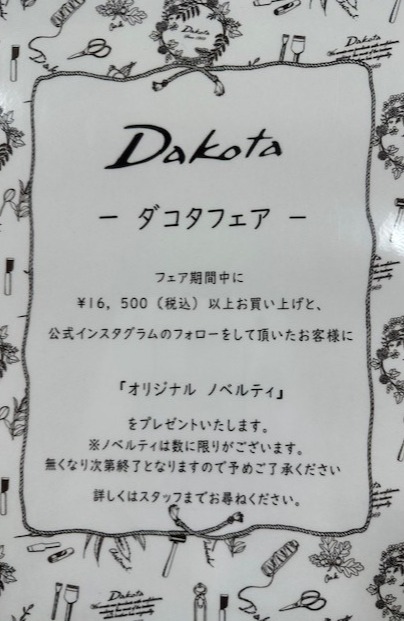 Dakota
Dakota
― ダコタフェア ―
フェア期間中に
¥16,500（税込）以上お買い上げと、
公式インスタグラムのフォローをして頂いたお客様に
「オリジナル ノベルティ」
をプレゼントいたします。
※ノベルティは数に限りがございます。
無くなり次第終了となりますので予めご了承ください
詳しくはスタッフまでお尋ねください。
Dakota